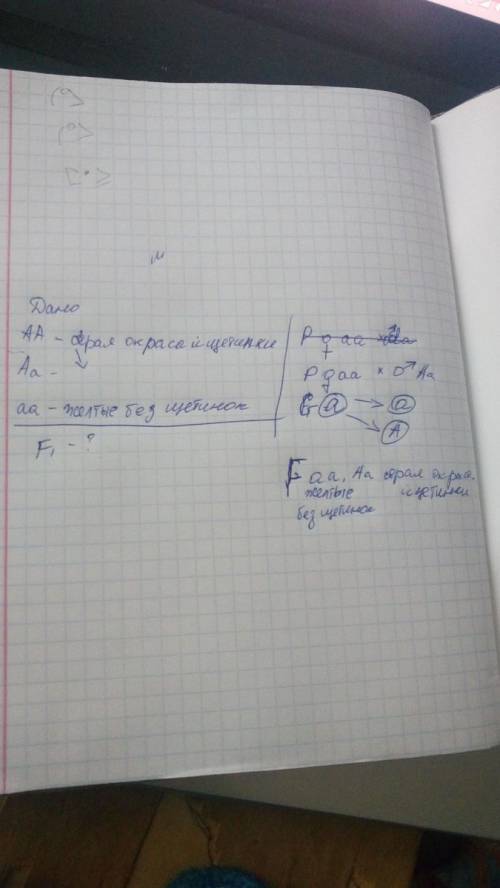 Дано
AA - серая окраска и щетинки
Aa -
aa - желтые без щетинок
F₁ - ?
P ♀ aa
P ♀ aa × ♂ Aa
G a → a
A
F aa, Aa серая окраска.
желтые и щетинки
без щетинок